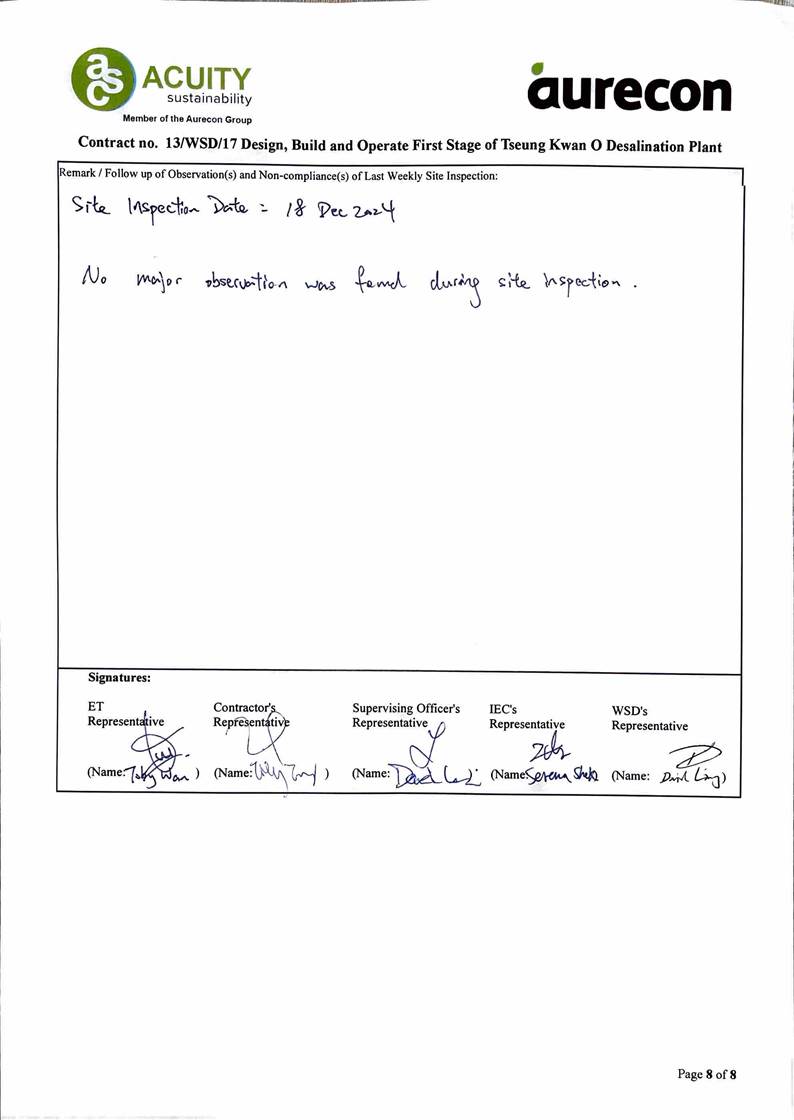 asc ACUITY
sustainability
Member of the Aurecon Group
aurecon
Contract no. 13/WSD/17 Design, Build and Operate First Stage of Tseung Kwan O Desalination Plant
Remark / Follow up of Observation(s) and Non-compliance(s) of Last Weekly Site Inspection:
Site Inspection Date : 18 Dec 2024
No major observation was found during site inspection .
Signatures:
ET Contractor's Supervising Officer's IEC's WSD's
Representative Representative Representative Representative Representative
(Name: Toby Wan ) (Name: ) (Name: David ) (Name: Serena Shek (Name: David Ling)
Page 8 of 8